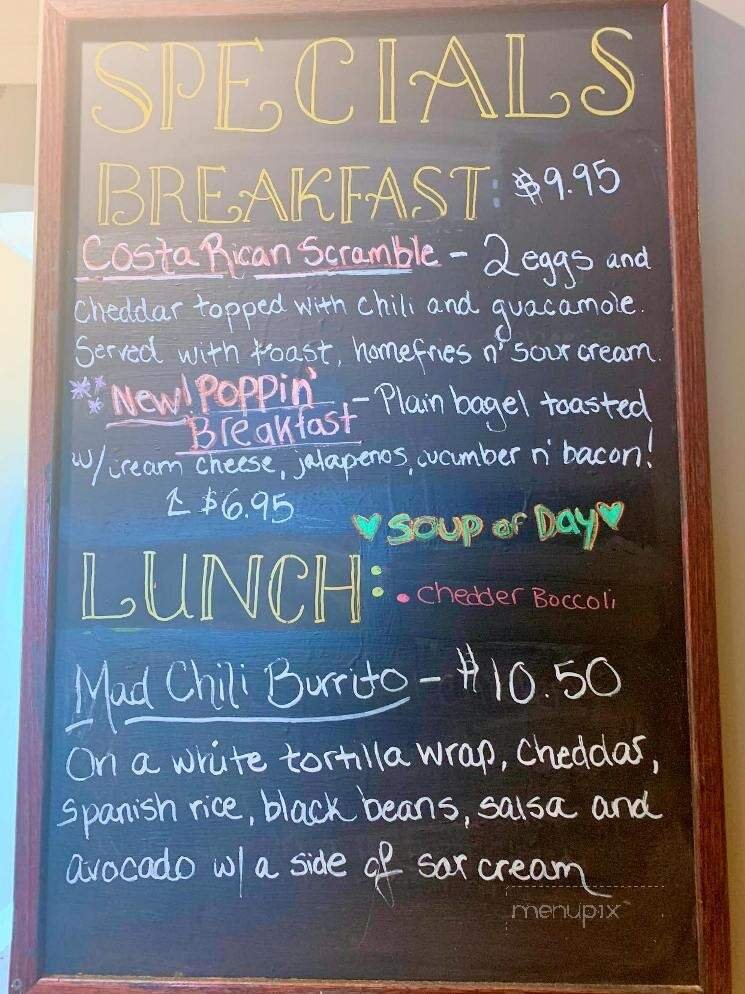 SPECIALS
BREAKFAST: $9.95
Costa Rican Scramble - 2 eggs and
cheddar topped with chili and guacamole.
Served with toast, homefries n' sour cream.
New! Poppin'
Breakfast - Plain bagel toasted
w/ cream cheese, jalapenos, cucumber n' bacon!
$6.95
Soup of Day
LUNCH: • chedder Boccoli
Mad Chili Burrito - $10.50
On a white tortilla wrap, cheddar,
spanish rice, black beans, salsa and
avocado w/ a side of sor cream
menupix